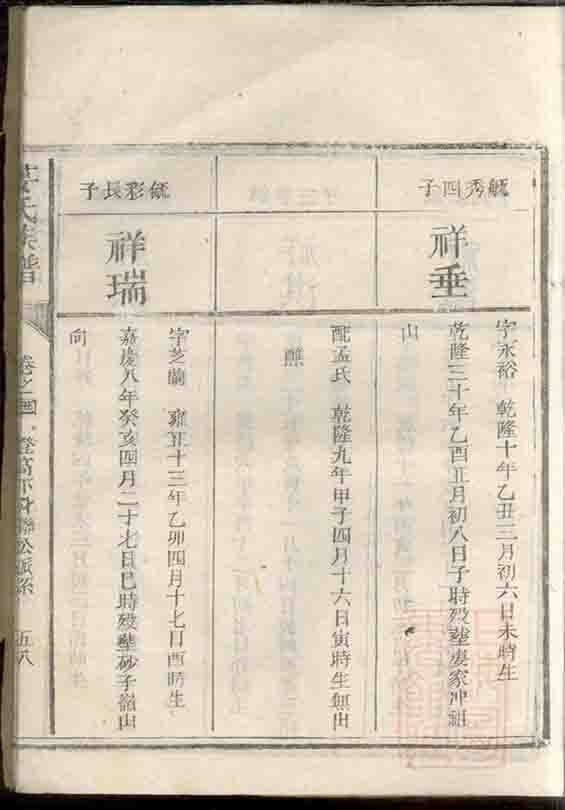 毓秀四子
祥垂
字永裕 乾隆十年乙丑三月初六日未時生
乾隆三十年乙酉五月初八日子時歿塟凄家冲祖
山
配孟氏 乾隆九年甲子四月十六日寅時生無出
毓彩長子
祥瑞
字芝蘭 雍正十三年乙卯四月十七日酉時生
嘉慶八年癸亥四月二十七日巳時歿塟砂子嶺山
向
氏族譜
卷之四 登高下 聯公派系 五八